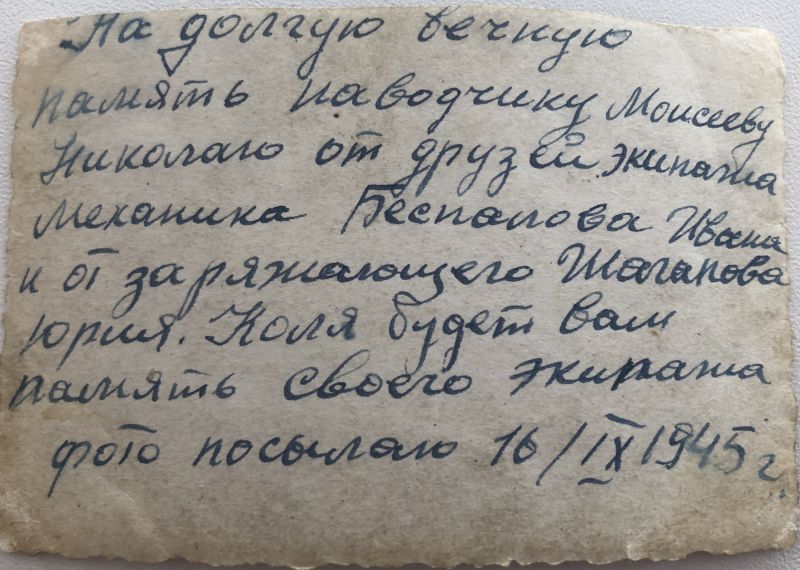 На долгую вечную
память наводчику Моисееву
Николаю от друзей экипажа
механика Беспалова Ивана
и от заряжающего Шагапова
Юрия. Коля будет вам
память своего экипажа
фото посылаю 16/IX 1945 г.